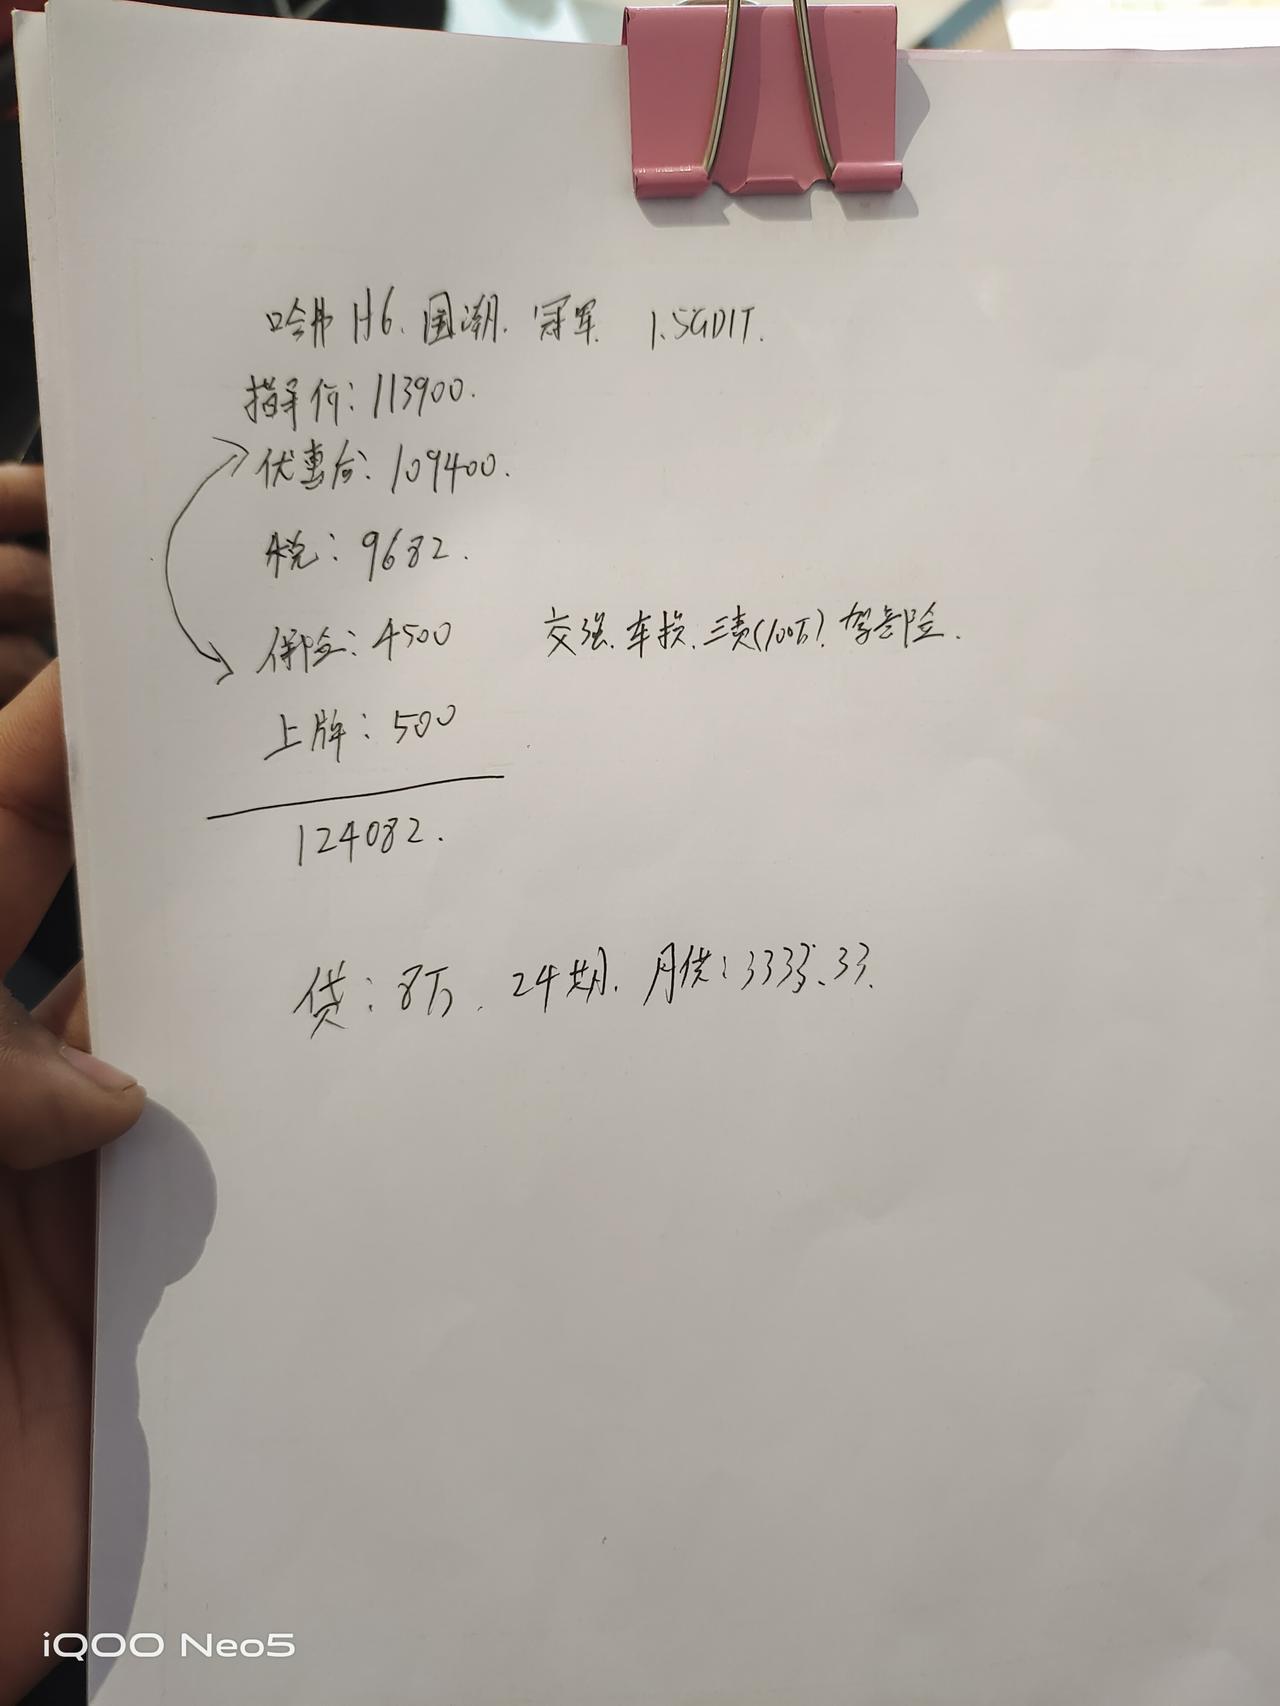 哈弗H6.国潮.冠军 1.5GDIT.
指导价:113900.
优惠后:109400.
税:9682.
保险:4500 交强.车损.三责(100万).驾意险.
上牌:500
124082.
贷:8万. 24期. 月供:3333.33.
iQOO Neo5